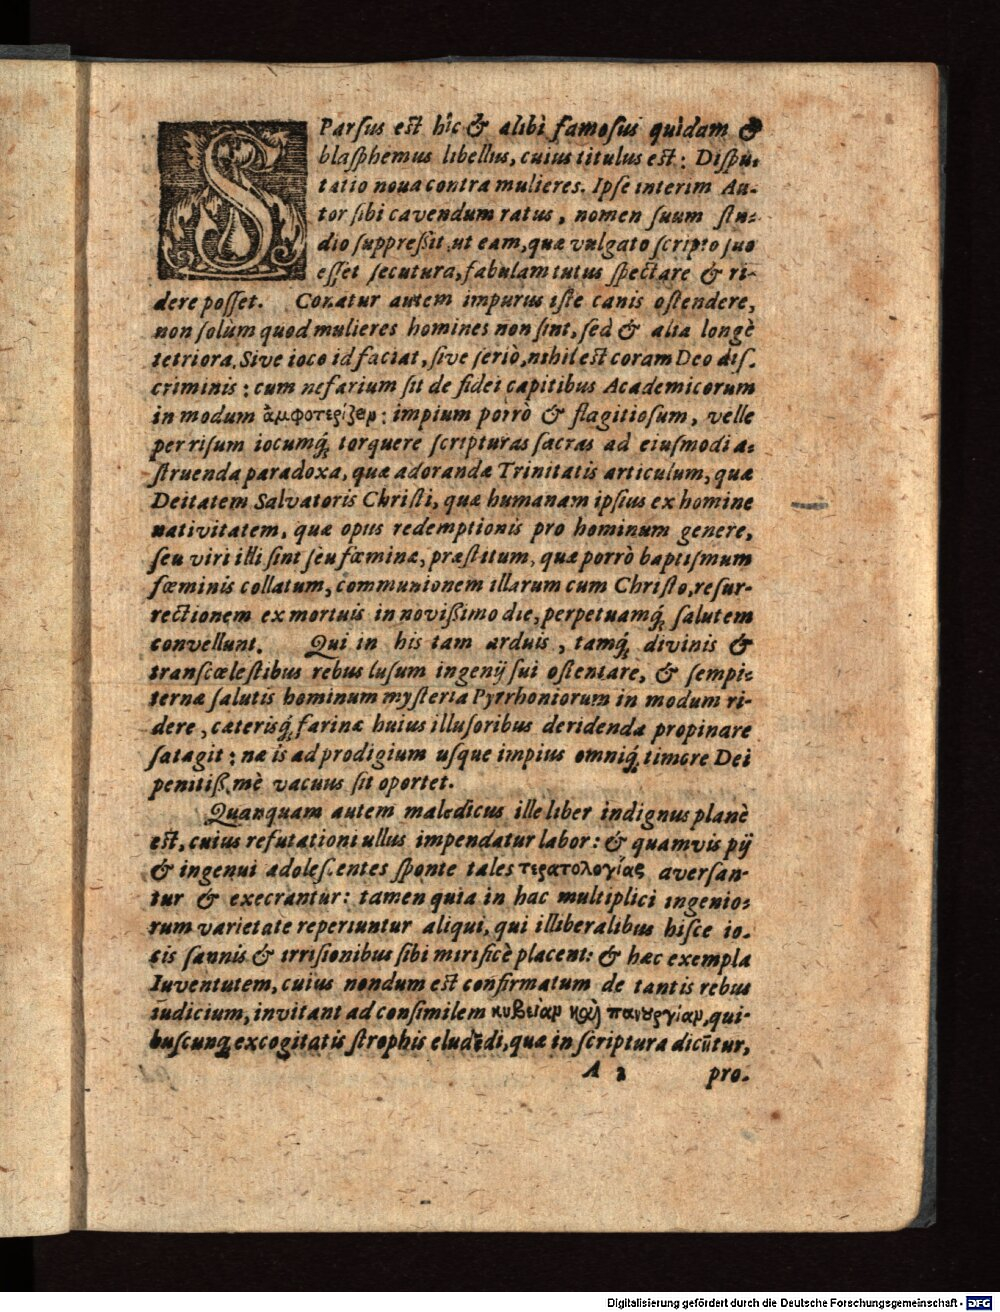 SParſus eſt hîc & alibi famoſus quidam &
blaſphemus libellus, cuius titulus eſt: Diſpu-
tatio noua contra mulieres. Ipſe interim Au-
tor ſibi cavendum ratus, nomen ſuum ſtu-
dio ſuppreßit ut eam, quæ vulgato ſcripto ſuo
eſſet ſecutura, fabulam tutus ſpectare & ri-
dere poſſet. Conatur autem impurus iſte canis oſtendere,
non ſolùm quod mulieres homines non ſint, ſed & alia longè
tetriora. Sive ioco id faciat, ſive ſeriò, nihil est coram Deo diſ-
criminis: cum nefarium ſit de fidei capitibus Academicorum
in modum ἀμφοτερίζειν: impium porrò & flagitioſum, velle
per riſum iocumq́; torquere ſcripturas ſacras ad eiuſmodi a-
ſtruenda paradoxa, quæ adorandæ Trinitatis articulum, quæ
Deitatem Salvatoris Chriſti, quæ humanam ipſius ex homine
nativitatem, quæ opus redemptionis pro hominum genere,
ſeu viri illi ſint ſeu fœminæ, præſtitum, quæ porrò baptiſmum
fœminis collatum, communionem illarum cum Chriſto, reſur-
rectionem ex mortuis in novißimo die, perpetuamq́; ſalutem
convellunt. Qui in his tam arduis, tamq́; divinis &
tranſcœleſtibus rebus luſum ingenij ſui oſtentare, & ſempi-
ternæ ſalutis hominum myſteria Pyrrhoniorum in modum ri-
dere, cæterisq́; farinæ huius illuſoribus deridenda propinare
ſatagit: næ is ad prodigium uſque impius omniq́; timore Dei
penitißimè vacuus ſit oportet.
Quanquam autem maledicus ille liber indignus planè
eſt, cuius refutationi ullus impendatur labor: & quamvis pij
& ingenui adoleſcentes ſponte tales τερατολογίας averſan-
tur & execrantur: tamen quia in hac multiplici ingenio-
rum varietate reperiuntur aliqui, qui illiberalibus hiſce io-
cis ſannis & irriſionibus ſibi mirificè placent: & hæc exempla
Iuventutem, cuius nondum eſt confirmatum de tantis rebus
iudicium, invitant ad conſimilem κυβείαν καὶ πανουργίαν, qui-
buſcunq; excogitatis ſtrophis eludēdi, quæ in ſcriptura dicūtur,
A 2 pro-
Digitalisierung gefördert durch die Deutsche Forschungsgemeinschaft - DFG